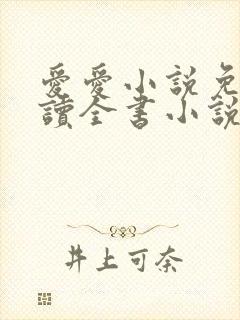 愛愛小説免
讀全書小説
井上可奈